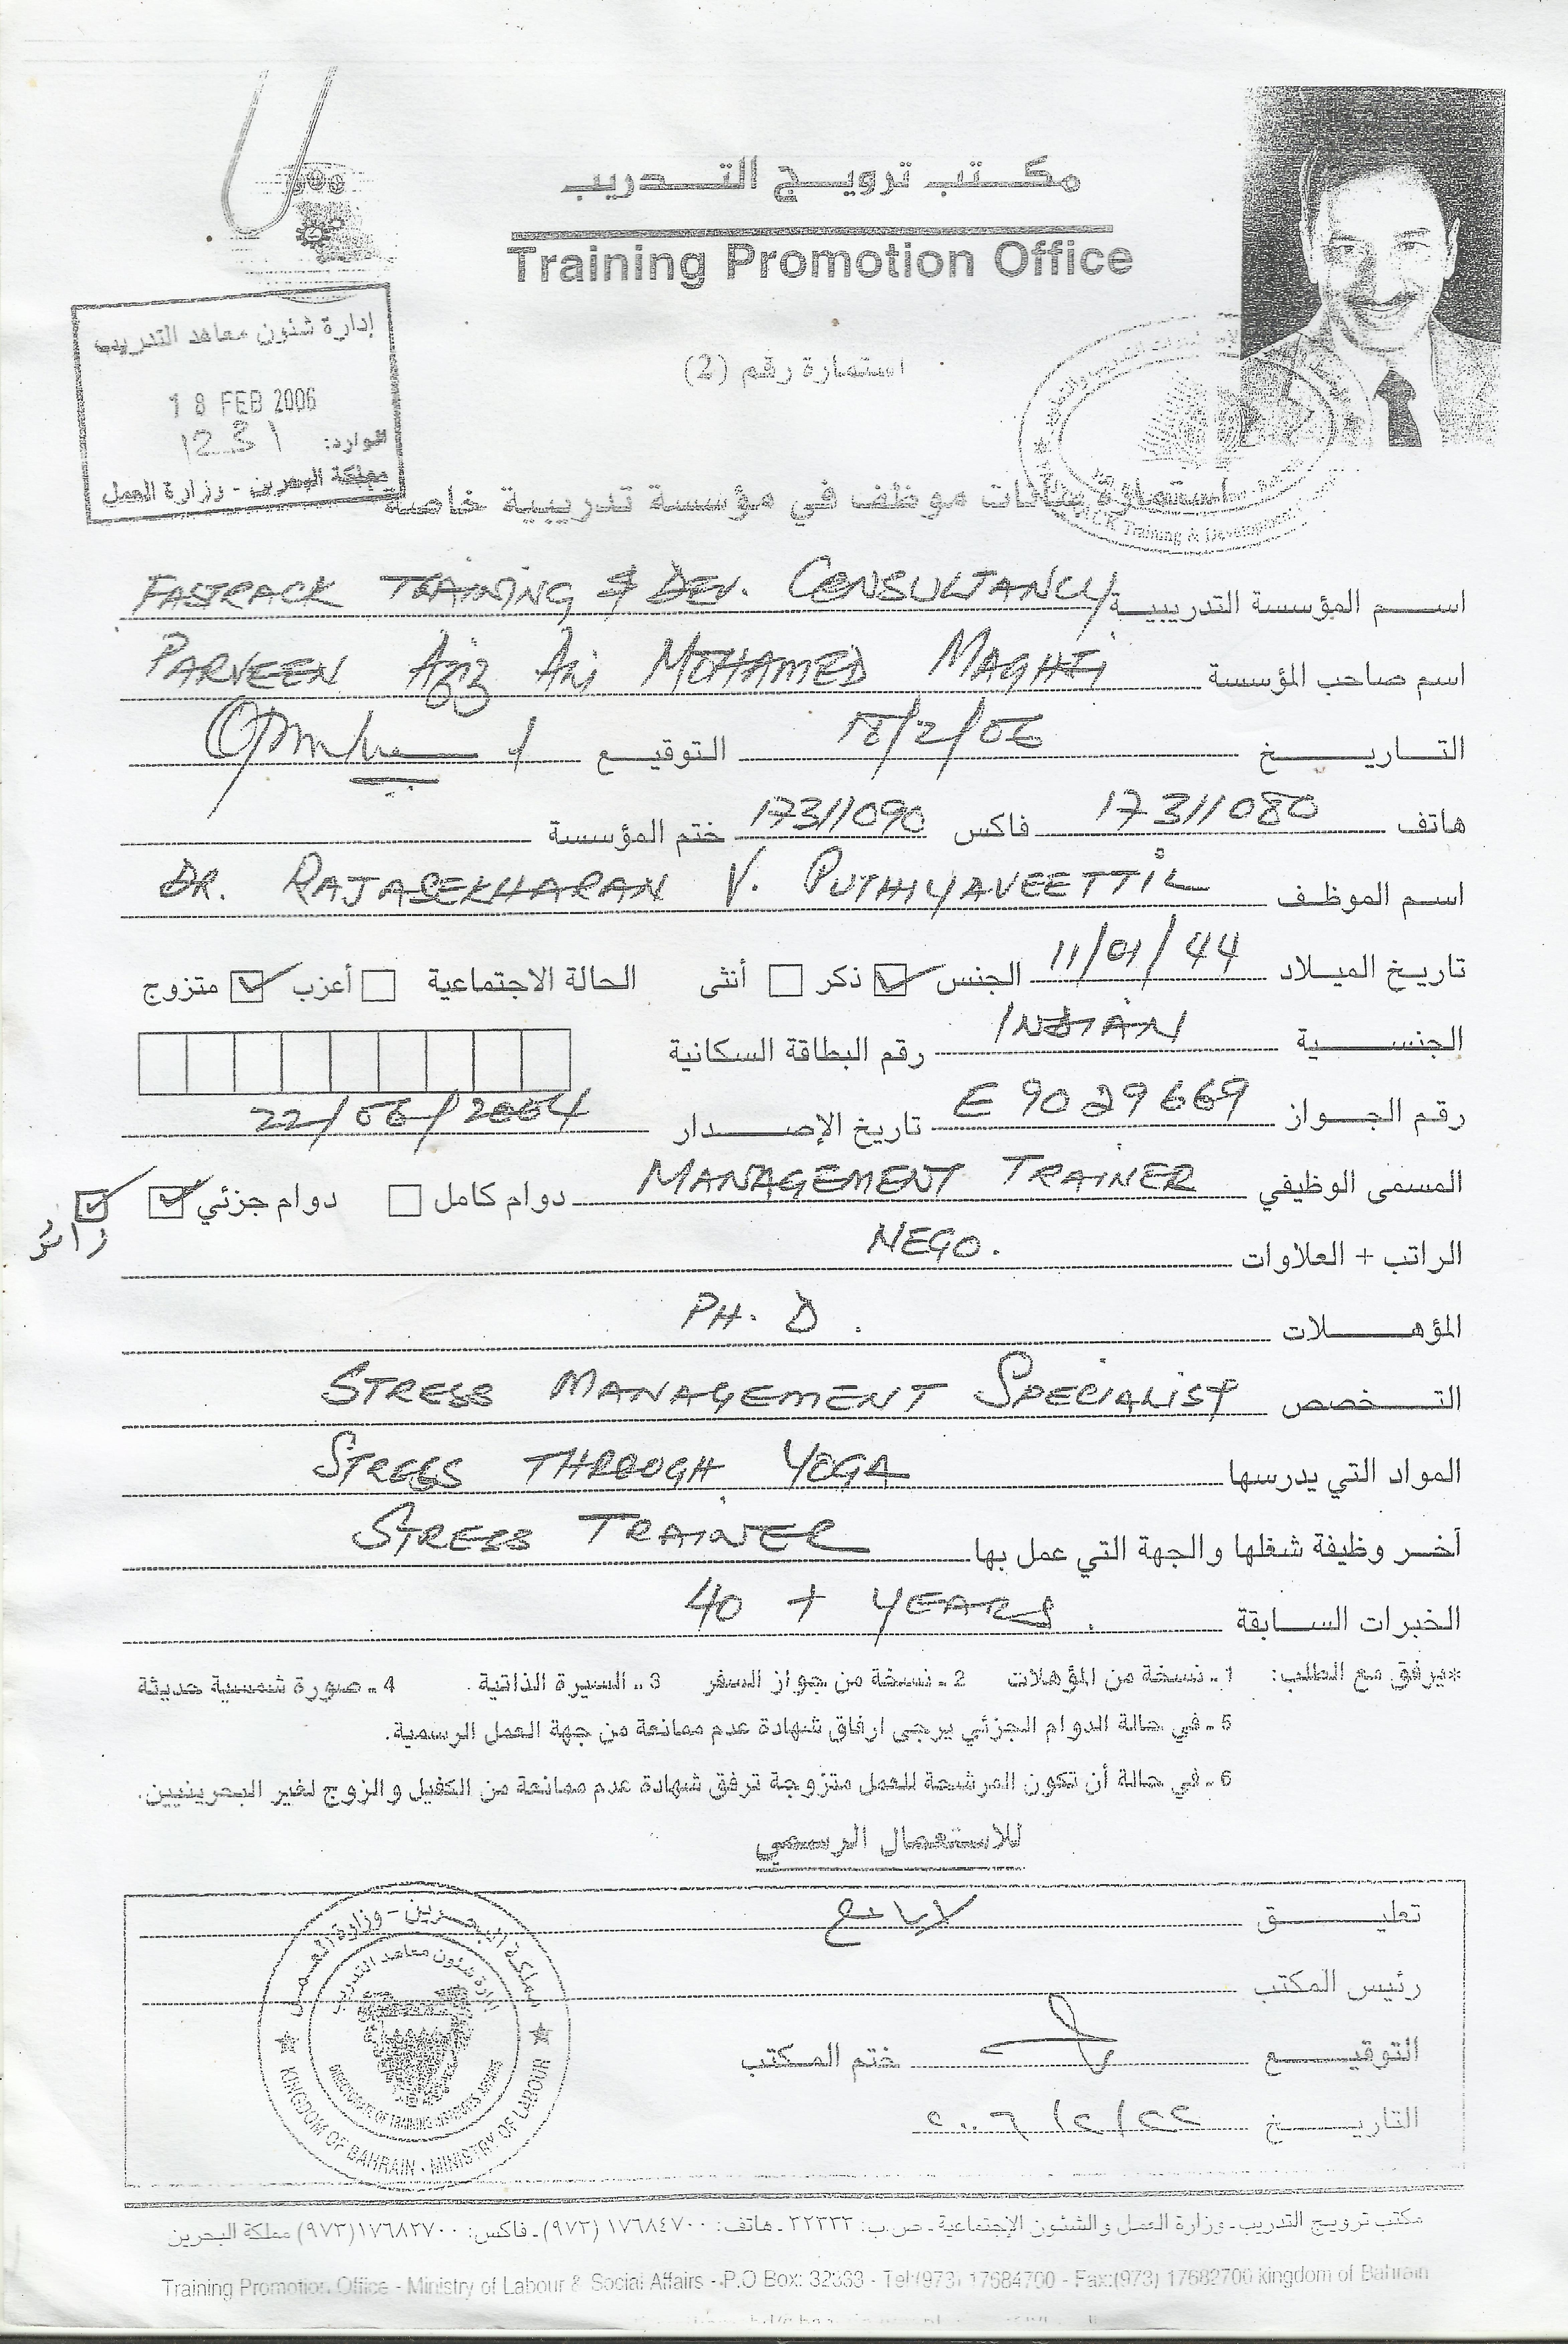 مكتب ترويج التدريب
Training Promotion Office
إدارة شئون معاهد التدريب
18 FEB 2006
الوارد: 1231
مملكة البحرين - وزارة العمل
استمارة رقم (2)
Training & Development
استمارة بيانات موظف في مؤسسة تدريبية خاصة
اسم المؤسسة التدريبية FASTRACK TRAINING & DEV. CONSULTANCY
اسم صاحب المؤسسة PARVEEN AZIZ MOHAMED
التاريخ 18/2/06 التوقيع
هاتف 17311080 فاكس 17311090 ختم المؤسسة
اسم الموظف DR. RAJASEKHARAN V. PUTHIYAVEETTIL
تاريخ الميلاد 11/01/44 الجنس ذكر أنثى الحالة الاجتماعية أعزب متزوج
الجنسية INDIAN رقم البطاقة السكانية
رقم الجواز E 9029669 تاريخ الإصدار 22/06/2004
المسمى الوظيفي MANAGEMENT TRAINER دوام كامل دوام جزئي
زائر
الراتب + العلاوات NEGO.
المؤهلات PH. D.
التخصص STRESS MANAGEMENT SPECIALIST
المواد التي يدرسها STRESS THROUGH YOGA
آخر وظيفة شغلها والجهة التي عمل بها STRESS TRAINER
الخبرات السابقة 40 + YEARS.
*يرفق مع الطلب: 1 - نسخة من المؤهلات 2 - نسخة من جواز السفر 3 - السيرة الذاتية 4 - صورة شمسية حديثة
5 - في حالة الدوام الجزئي يرجى ارفاق شهادة عدم ممانعة من جهة العمل الرسمية.
6 - في حالة أن تكون المرشحة للعمل متزوجة ترفق شهادة عدم ممانعة من الكفيل والزوج لغير البحرينيين.
للاستعمال الرسمي
تعليق لا مانع
رئيس المكتب
التوقيع ختم المكتب
التاريخ ٢٢/٢/٢٠٠٦
مملكة البحرين - وزارة العمل
إدارة شئون معاهد التدريب
DIRECTORATE OF TRAINING INSTITUTES AFFAIRS
KINGDOM OF BAHRAIN - MINISTRY OF LABOUR
مكتب ترويج التدريب - وزارة العمل والشئون الإجتماعية - ص.ب: ٣٢٣٣٣ - هاتف: ١٧٦٨٤٧٠٠ (٩٧٣) - فاكس: ١٧٦٨٢٧٠٠ (٩٧٣) مملكة البحرين
Training Promotion Office - Ministry of Labour & Social Affairs - P.O Box: 32333 - Tel:(973) 17684700 - Fax:(973) 17682700 kingdom of Bahrain